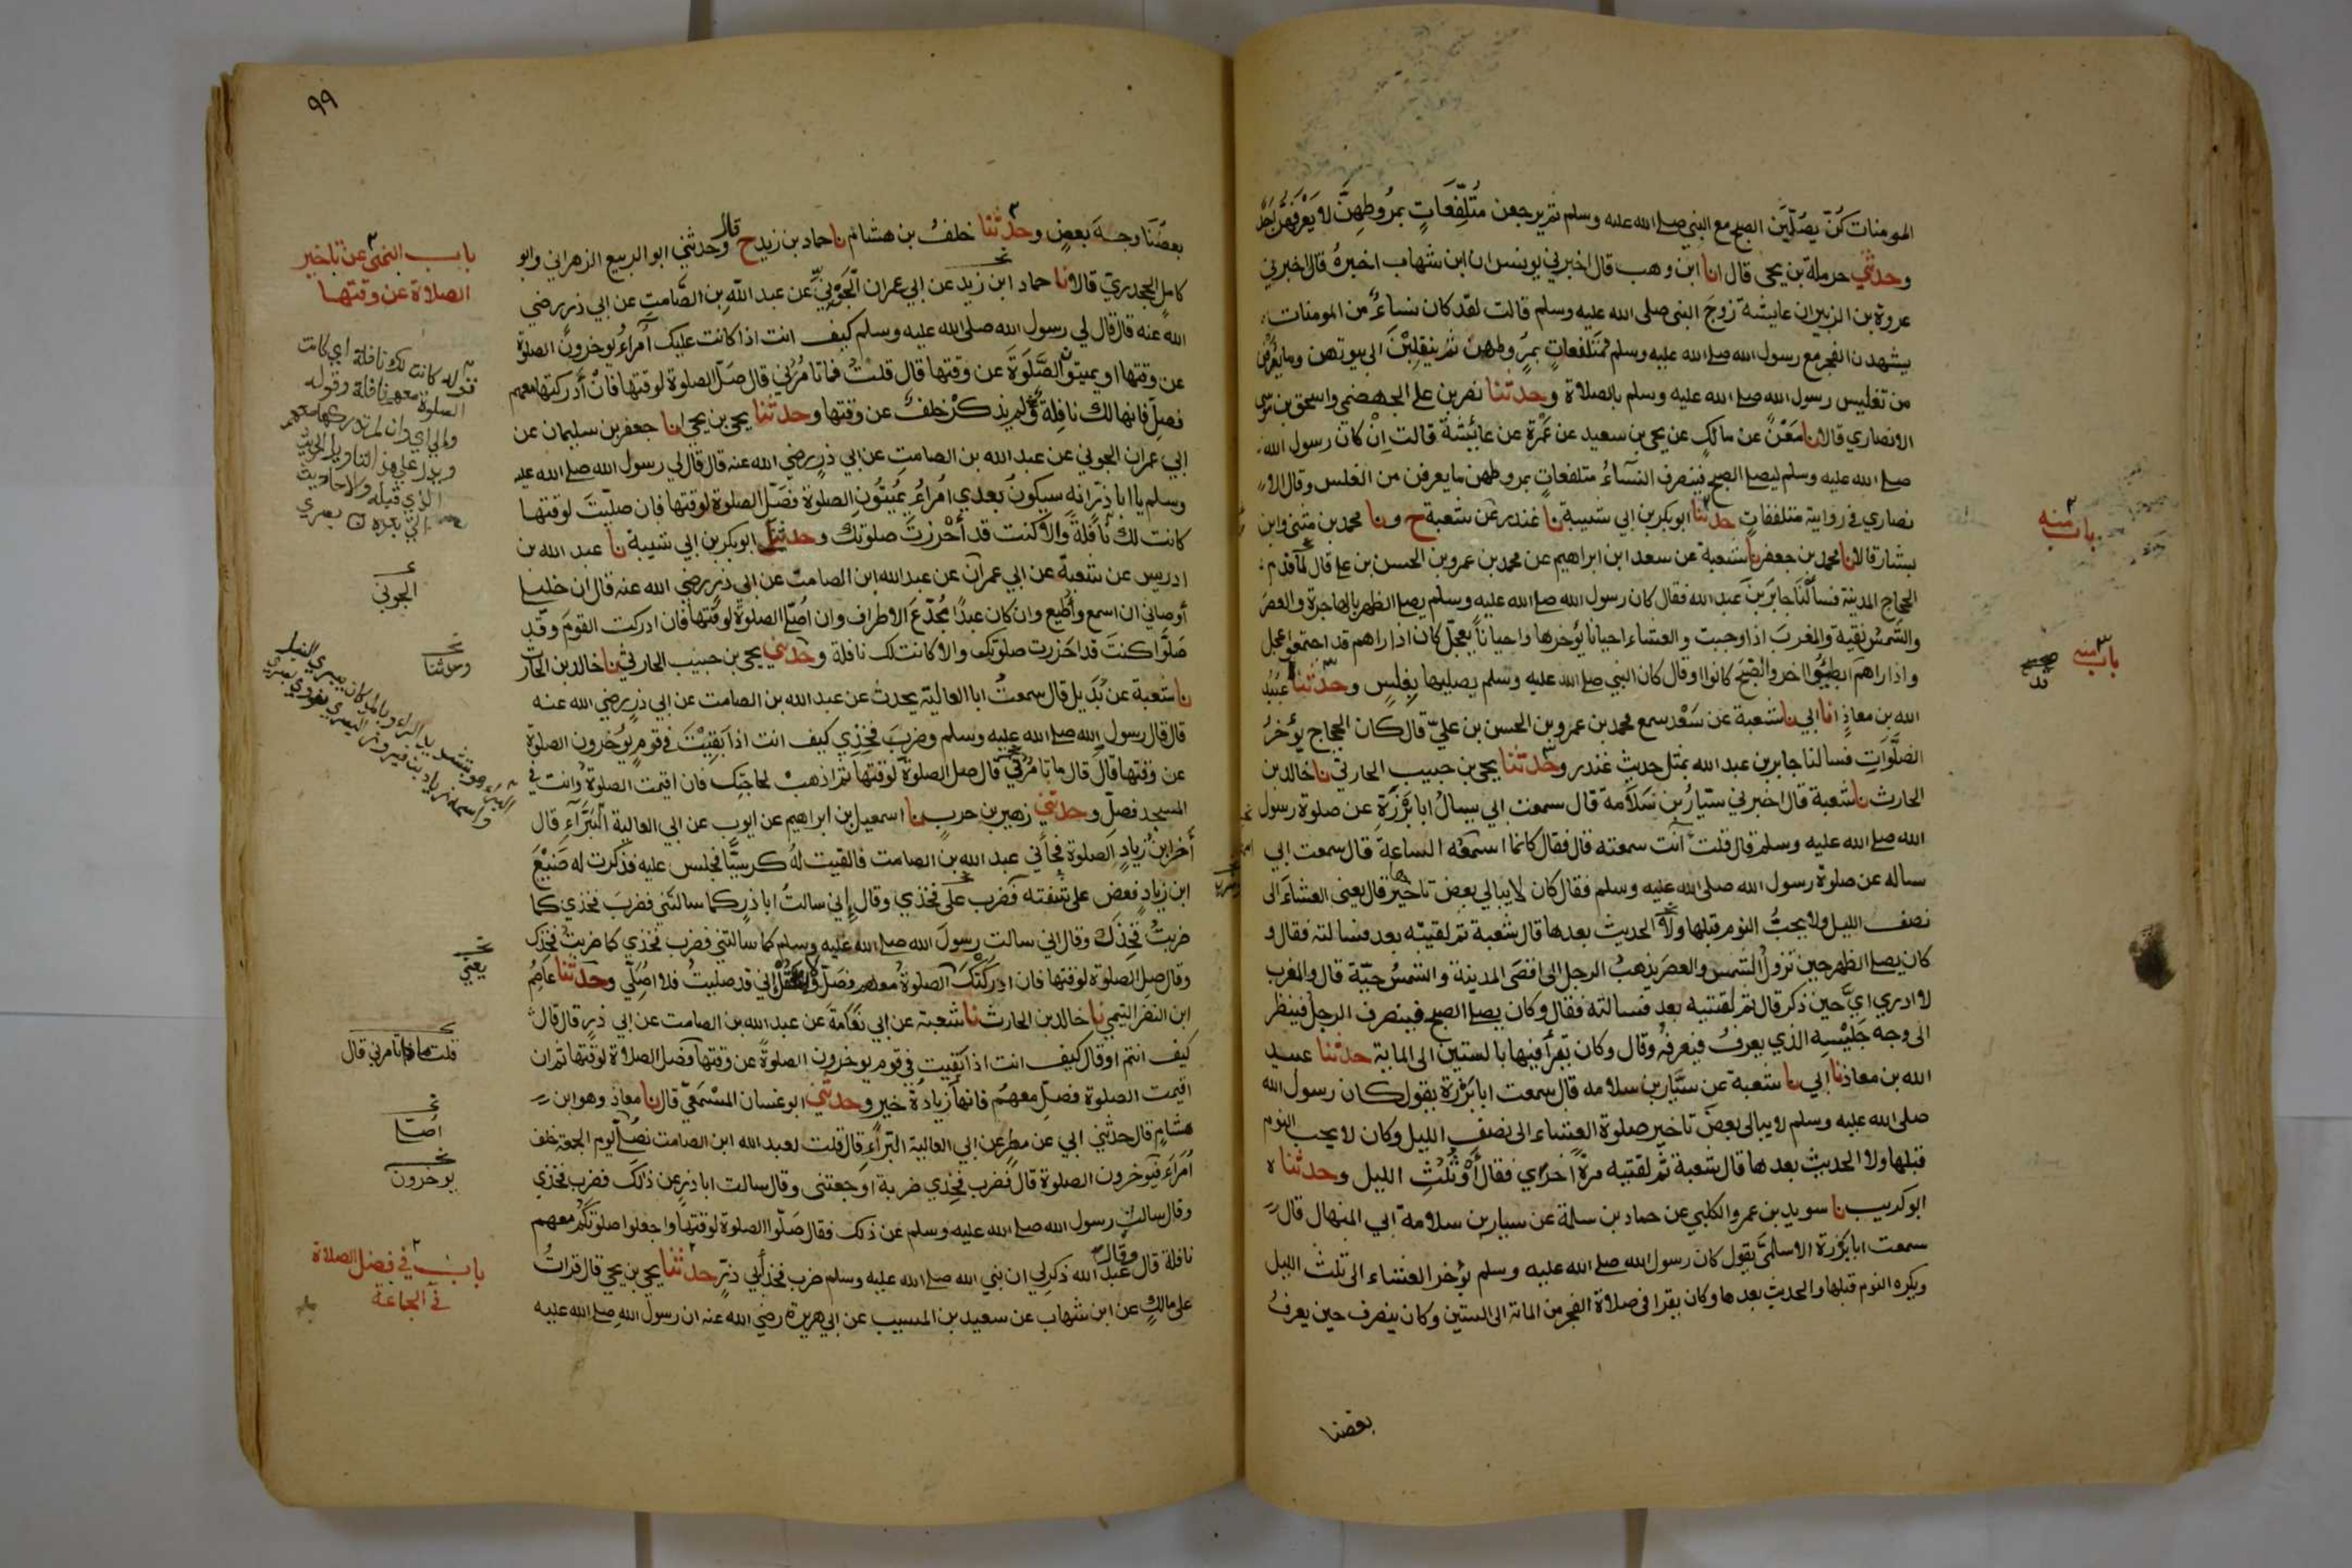 المومنات كُنّ يصُلّين الصبح مع النبي صلے الله عليه وسلم ثم يرجعن مُتَلَفِّعَاتٍ بمرُوطِهِنّ لا يَعْرفهُنّ احَد
وحدثني حرملة بن يحيى قال انا ابن وهب قال اخبرني يونس ان ابن شهاب اخبرهُ قال اخبرني
عروة بن الزبير ان عايشة زوج النبي صلى الله عليه وسلم قالت لقد كان نساءٌ من المومنات
يشهدن الفجر مع رسول الله صلے الله عليه وسلم متلفعاتٍ بمرُوطهن ثم ينقلبْنَ الى بيوتهن وما يُعْرفْن
من تغليس رسول الله صلے الله عليه وسلم بالصلاة وحدثنا نصر بن علي الجهضمي واسحق بن موسى
الانصاري قالا نا مَعْنٌ عن مالكٍ عن يحيى بن سعيد عن عَمْرة عن عائيشة قالت اِنْ كان رسول الله
صلے الله عليه وسلم ليصلے الصبح فينصرف النسآءُ متلفعاتٍ بمروطهن ما يعرفن من الغلس وقال الا
نصاري في روايته متلففاتٍ حدثنا ابوبكر بن ابي شيبة نا غندر عن شعبة ح ونا محمد بن مثنى وابن
بشار قالا نا محمد بن جعفر نا شعبة عن سعد ابن ابراهيم عن محمد بن عمرو بن الحسن بن علے قال لما قدم
الحجاج المدينة فسألْنَا جابرَ بن عبد الله فقال كان رسول الله صلے الله عليه وسلم يصلے الظهر بالهاجرة والعصر
والشمسُ نقية والمغربَ اذا وجبت والعشاء احيانا يُؤخرها واحياناً يعجّل كان اذا راهم قد اجتمعوا عجل
واذا راهم ابطئوا اخر والصبحَ كانوا او قال كان النبي صلے الله عليه وسلم يصليها بغلسٍ وحدثنا عبيد
الله بن معاذٍ انا ابي نا شعبة عن سَعْد سمع محمد بن عمرو بن الحسن بن عليّ قال كان الحجاج يؤخرُ
الصَّلَوَاتِ فسالنا جابر بن عبد الله بمثل حديث غندر وحدثنا يحيى بن حبيب الحارثي نا خالد بن
الحارث نا شعبة قال اخبرني سيّارُ بن سَلَامة قال سمعت ابي يسالُ ابا بَرْزَةِ عن صلوة رسول
الله صلے الله عليه وسلم قال قلت آنت سمعته قال فقال كانما اسمعُه الساعة قال سمعت ابي
ساله عن صلوة رسول الله صلى الله عليه وسلم فقال كان لا يبالي بعض تاخيرها قال يعني العشاء الى
نصف الليل ولا يحبُّ النوم قبلها ولا الحديث بعدها قال شعبة ثم لقيته بعد فسالته فقال و
كان يصلے الظهر حين تزولُ الشمس والعصر يذهبُ الرجل الى اقصَى المدينة والشمسُ حيّة قال والمغرب
لا ادري ايَّ حين ذكر قال ثم لقيته بعد فسالته فقال وكان يصلے الصبح فينصرف الرجل فينظر
الى وجه جَليْسِه الذي يعرفُ فيعرفُه وقال وكان يقرأ فيها بالستين الى الماية حدثنا عبيد
الله بن معاذ نا ابي نا شعبة عن سَيّار بن سلامه قال سمعت ابا بَرْزة يقول كان رسول الله
صلى الله عليه وسلم لا يبالى بعضَ تاخير صلوة العشاء الى نصف الليل وكان لا يحب النوم
قبلها ولا الحديث بعدها قال شعبة ثم لقيته مرةً اخرٰي فقال أوْ ثُلُثِ الليل وحدثنا ه
ابو كريب نا سويد بن عمرو الكلبي عن حماد بن سلمة عن سيار بن سلامة ابي المنهال قال
سمعت ابا بَرْزة الاسلميَّ يقول كان رسول الله صلے الله عليه وسلم يؤخر العشاء الى ثلث الليل
ويكره النوم قبلها والحديث بعدها وكان يقرا في صلاة الفجر من المائة الى الستين وكان ينصرف حين يعرفُ
بعضنا
باب منه
باب منه
٩٩
بعضُنَا وجهَ بعضٍ وحدثنا خلفُ بن هشام نا حماد بن زيد ح قال وحدثني ابو الربيع الزهراني وابو
كاملٍ الجحدريّ قالا نا حماد ابن زيد عن ابي عمران الجَوْنيِّ عن عبد الله بن الصَّامتِ عن ابي ذرٍ رضي
الله عنه قال قال لي رسول الله صلى الله عليه وسلم كيف انت اذا كانت عليك اُمراءُ يُوخرون الصلوة
عن وقتها او يميتون الصَّلَوةَ عن وقتها قال قلتُ فما تامُرُني قال صَلّ الصلوة لوقتها فانْ أدركتها معهم
فصلّ فانها لك نافِلة ولم يذكرْ خلفٌ عن وقتها وحدثنا يحيى بن يحيى انا جعفر بن سليمان عن
ابي عمران الجوني عن عبد الله بن الصامتِ عن ابي ذرٍ رضي الله عنه قال قال لي رسول الله صلے الله عليه
وسلم يا ابا ذر انه سيكونُ بعدي امُراءُ يُميتُونَ الصلوة فصَلّ الصلوة لوقتها فان صلّيتَ لوقتها
كانت لك نافلةً والا كنت قد أحْرزتَ صلوتك وحدثنا ابوبكر بن ابي شيبة نا عبد الله بن
ادريس عن شعبة عن ابي عمران عن عبد الله ابن الصامت عن ابي ذرٍ رضي الله عنه قال ان خليلي
أوصاني ان اسمع وأُطيع وان كان عبدًا مُجدّعَ الاطراف وان اُصلّي الصلوة لوقتها فان ادركت القومَ وقد
صَلَّوا كنتَ قد احَرزت صلوتَك والا كانت لك نافلة وحدثني يحيى بن حبيب الحارثي نا خالد بن الحارث
نا شعبة عن بُدَيل قال سمعتُ ابا العالية يحدث عن عبد الله بن الصامت عن ابي ذرٍ رضي الله عنه
قال قال رسول الله صلے الله عليه وسلم وضربَ فخِذي كيف انت اذا بَقِيْتَ في قومٍ يُؤخرون الصلوة
عن وقتها قال قال ما تامُرُني قال صل الصلوة لوقتها ثم اذهبْ لحاجتِك فان اقيمت الصلوة وانت في
المسجد فصلّ وحدثني زهير بن حرب نا اسمعيل بن ابراهيم عن ايوب عن ابي العالية البَرَّآء قال
أخر ابنُ زيادٍ الصلوة فجأني عبد الله بن الصامت فالقيت لهُ كرسيًّا فجلس عليه فذكرت له صَنِيْعَ
ابن زيادٍ فعض على شفته فضرب على فخذي وقال إني سالتُ ابا ذرٍ كما سالتني فضربَ فخذي كما
ضربتُ فخِذَك وقال اني سالت رسولَ الله صلے الله عليه وسلم كما سالتني فضرب فخذي كما ضربتُ فخذك
وقال صلّ الصلوة لوقتها فان ادركَتْكَ الصلوةُ معهم فصَلّ ولا تقُلْ إني قد صليتُ فلا اُصَلّي وحدثنا عاصم
ابن النضر التيمي نا خالد بن الحارث نا شعبة عن ابي نعَامةَ عن عبد الله بن الصامت عن ابي ذرٍ قال قال
كيف انتم او قال كيف انت اذا بقيت في قوم يوخرون الصلوةَ عن وقتها فصَل الصلاة لوقتها ثم ان
اقيمت الصلوة فصَلّ معهُم فانها زيادةُ خيرٍ وحدثني ابو غسان المِسْمَعيّ قال نا معاذ وهو ابن
هشامٍ قال حدثني ابي عن مطرٍ عن ابي العالية البرّآءِ قال قلت لعبد الله ابن الصامت نُصَلّي يوم الجمعة خلف
اُمَرَاءَ فيوخرون الصلوة قال فضرب فَخِذي ضربةً اوجعتنى وقال سالت ابا ذرٍ عن ذلك فضرب فخذي
وقال سالت رسول الله صلے الله عليه وسلم عن ذلك فقال صَلّوا الصلوة لوقتها واجعلوا صلوتكُم معهم
نافلة قال وقال عبدُ الله ذكر لي ان نبي الله صلے الله عليه وسلم ضرب فخذ أبي ذرٍّ حدثنا يحيى بن يحيى قال قراتُ
على مالكٍ عن ابن شهاب عن سعيد بن المسيب عن ابي هريرة رضي الله عنه ان رسول الله صلے الله عليه
باب النهى عن تاخير
الصلاة عن وقتها
قوله كانت لك نافلة اي كانت
الصلوة معهم نافلة وقوله
والا اي وان لم تدركها معهم
ويدل على هذا التاويل الحديث
الذي قبله والاحاديث
التي بعده
الجوني
وحدثنا
يعني
قلت ما تامرني قال
اُصلي
يوخرون
باب في فضل الصلاة
في الجماعة